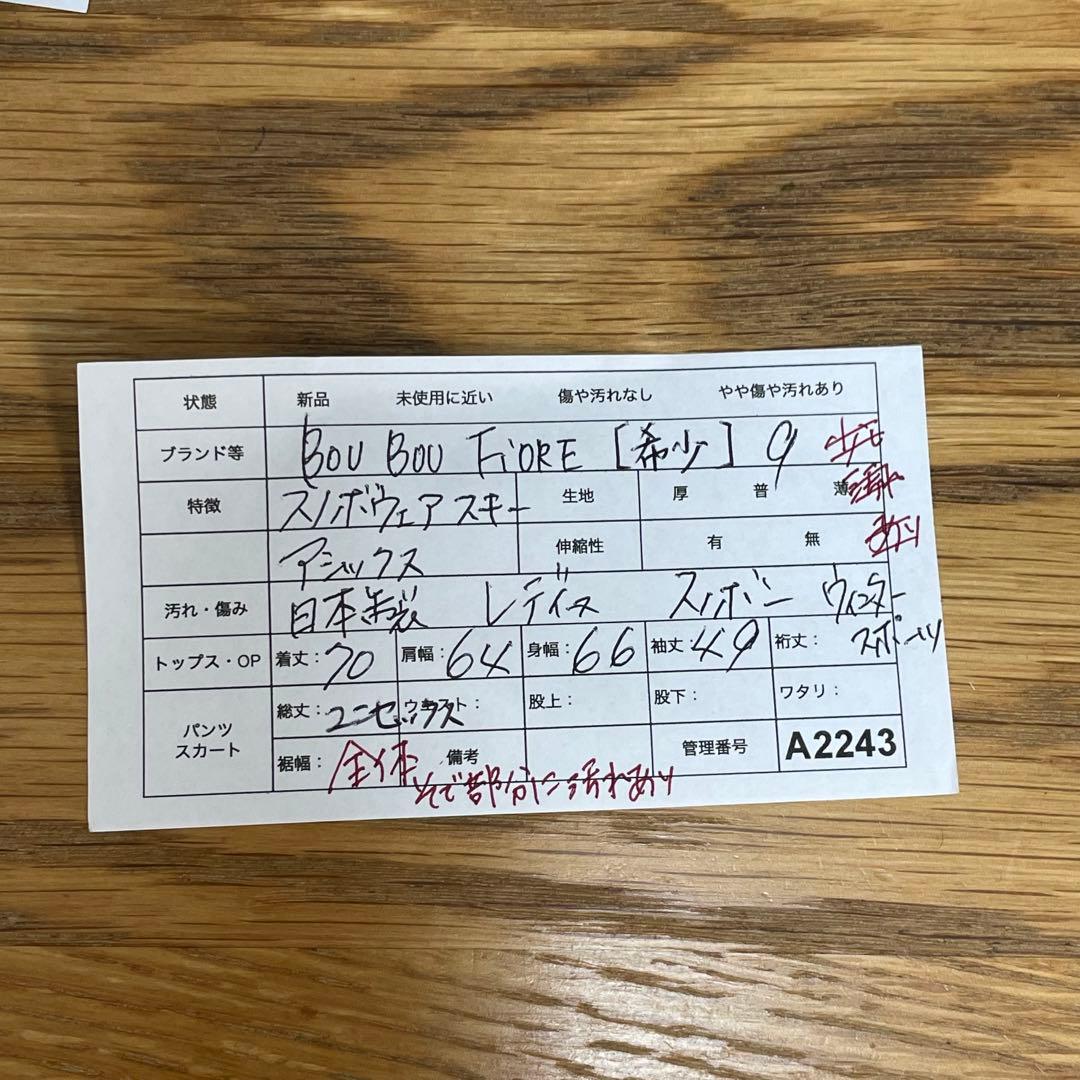 状態 新品 未使用に近い 傷や汚れなし やや傷や汚れあり
ブランド等 BOU BOU FiORE [希少] 9
特徴 スノボウェア スキー 生地 厚 普 薄
アシックス 伸縮性 有 無 あり
汚れ・傷み 日本製 レディース スノボー ウィンタースポーツ
トップス・OP 着丈：70 肩幅：64 身幅：66 袖丈：49 裄丈：
パンツ スカート 総丈：ユニセックス ウエスト： 股上： 股下： ワタリ：
裾幅：全体 備考 管理番号 A2243
そで部分に汚れあり